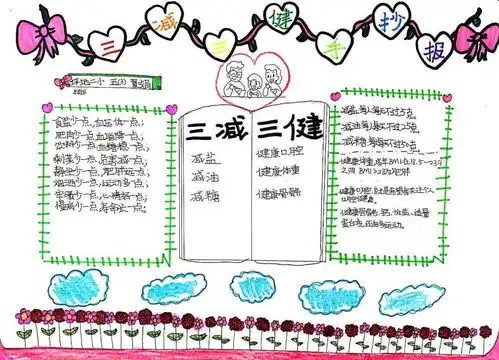 三减三健手抄报
坪地二小 五(3)
食盐少一点,血压低一点;
肥肉少一点,血脂降一点;
饮料少一点,血糖稳一点;
少一点,危害减一点;
静坐少一点,肥胖远一点;
烟酒少一点,运动多一点;
牢骚少一点,心情好一点;
少一点,寿命长一点;
三减
减盐
减油
减糖
三健
健康口腔
健康体重
健康骨骼
减盐每人每天不过5克
减油每人每天不过25克
减糖每人每天不过
健康体重,成年BMI在18.5~23.9
之间 BMI>28为肥胖
健康口腔,
健康骨骼,钙、适量
蛋白质,还有多运动。